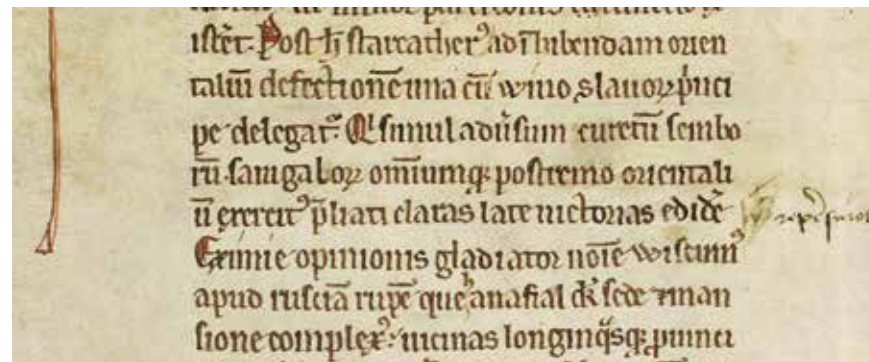 istēt. Post h̄ starcather᷒ ad īhibendam orien
taliū defectionē una cū wino slauoꝝ pͥnci
pe delegat᷒. Qͥ simul adūsum curetū sembo
rū sangaloꝝ omīumqꝫ postremo orientali
ū exercit᷒ p̄liati claras late uictorias edidē
Eximie opinionis gladiator noīe wiscinn᷒
apud rusciā rupē que anafial dr̄ sede ⁊ man
sione complex᷒. uicinas longinqͣsqꝫ ꝓuinci